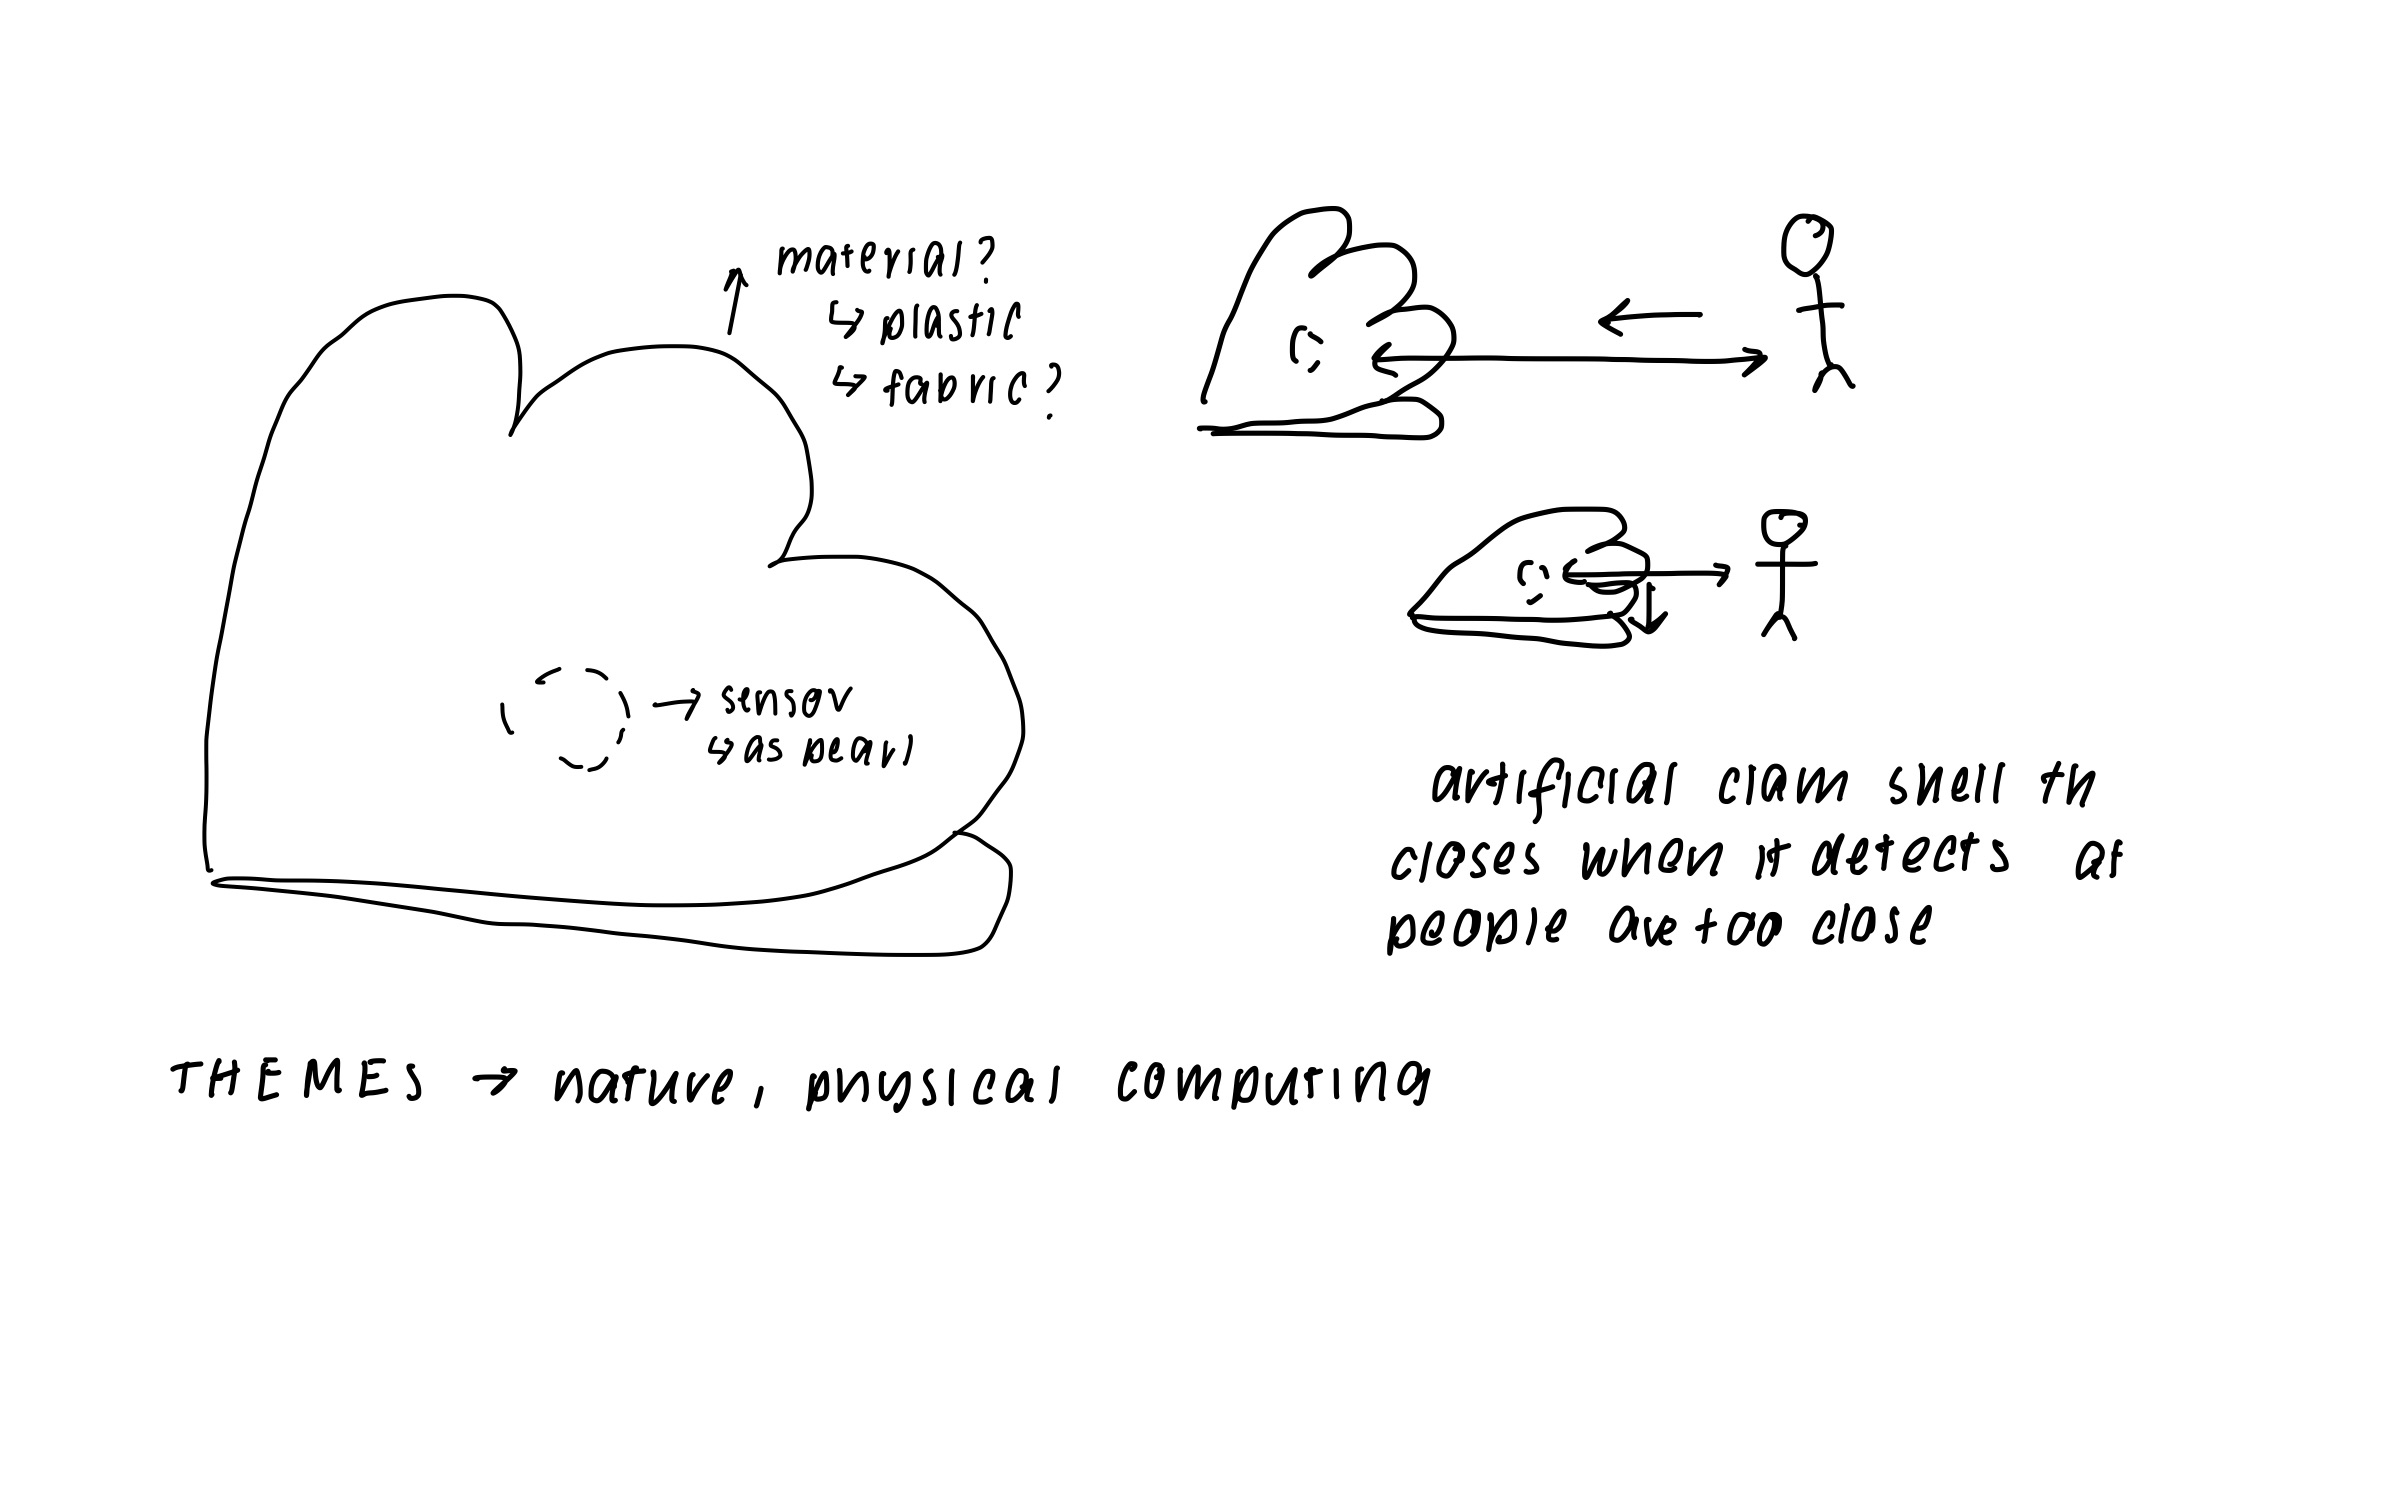 material?
↳ plastic
↳ fabric?
→ sensor
↳ as pearl
artificial clam shell th
closes when it detects at
people are too close
THEMES → nature, physical computing